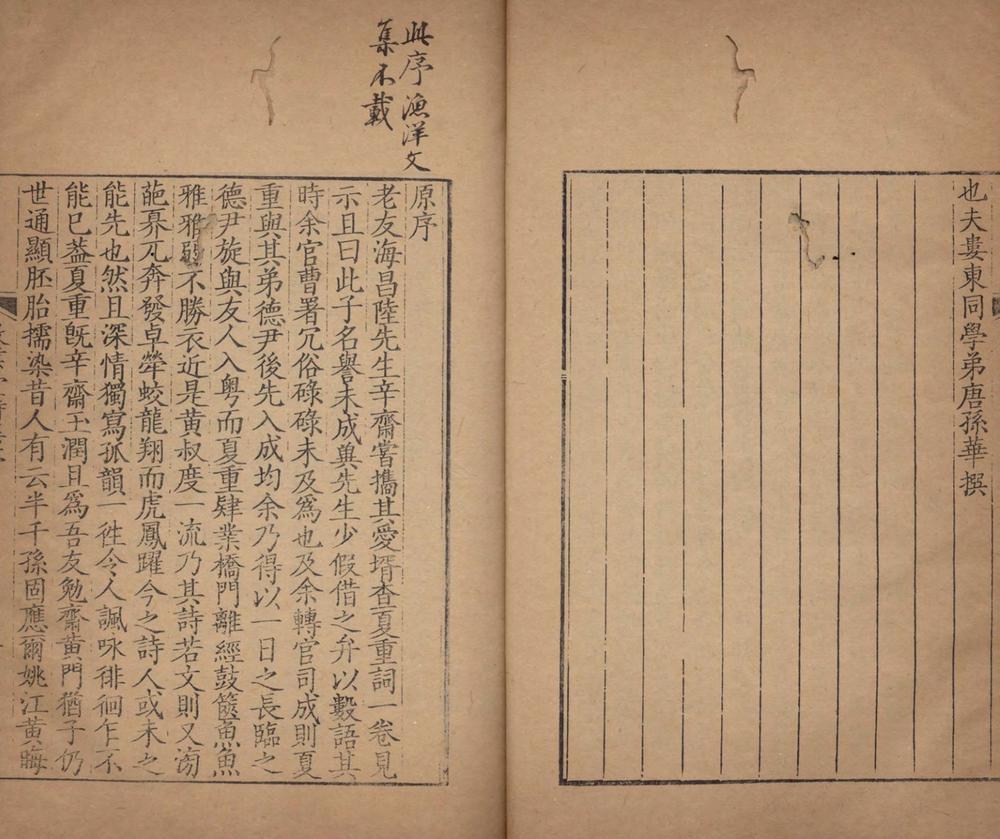 也夫婁東同學弟唐孫華撰
此序漁洋文
集不載
原序
老友海昌陸先生辛齋嘗攜其愛壻查夏重詞一卷見
示且曰此子名譽未成與先生少假借之弁以數語其
時余官曹署冗俗碌碌未及爲也及余轉官司成則夏
重與其弟德尹後先入成均余乃得以一日之長臨之
德尹旋與友人入粤而夏重肄業橋門離經鼓篋魚魚
雅雅弱不勝衣近是黄叔度一流乃其詩若文則又滂
葩奡兀奔發卓犖蛟龍翔而虎鳳躍今之詩人或未之
能先也然且深情獨寫孤韻一徃令人諷咏徘徊乍不
能已葢夏重旣辛齋玉潤且爲吾友勉齋黄門猶子仍
世通顯胚胎擩染昔人有云半千孫固應爾姚江黄晦